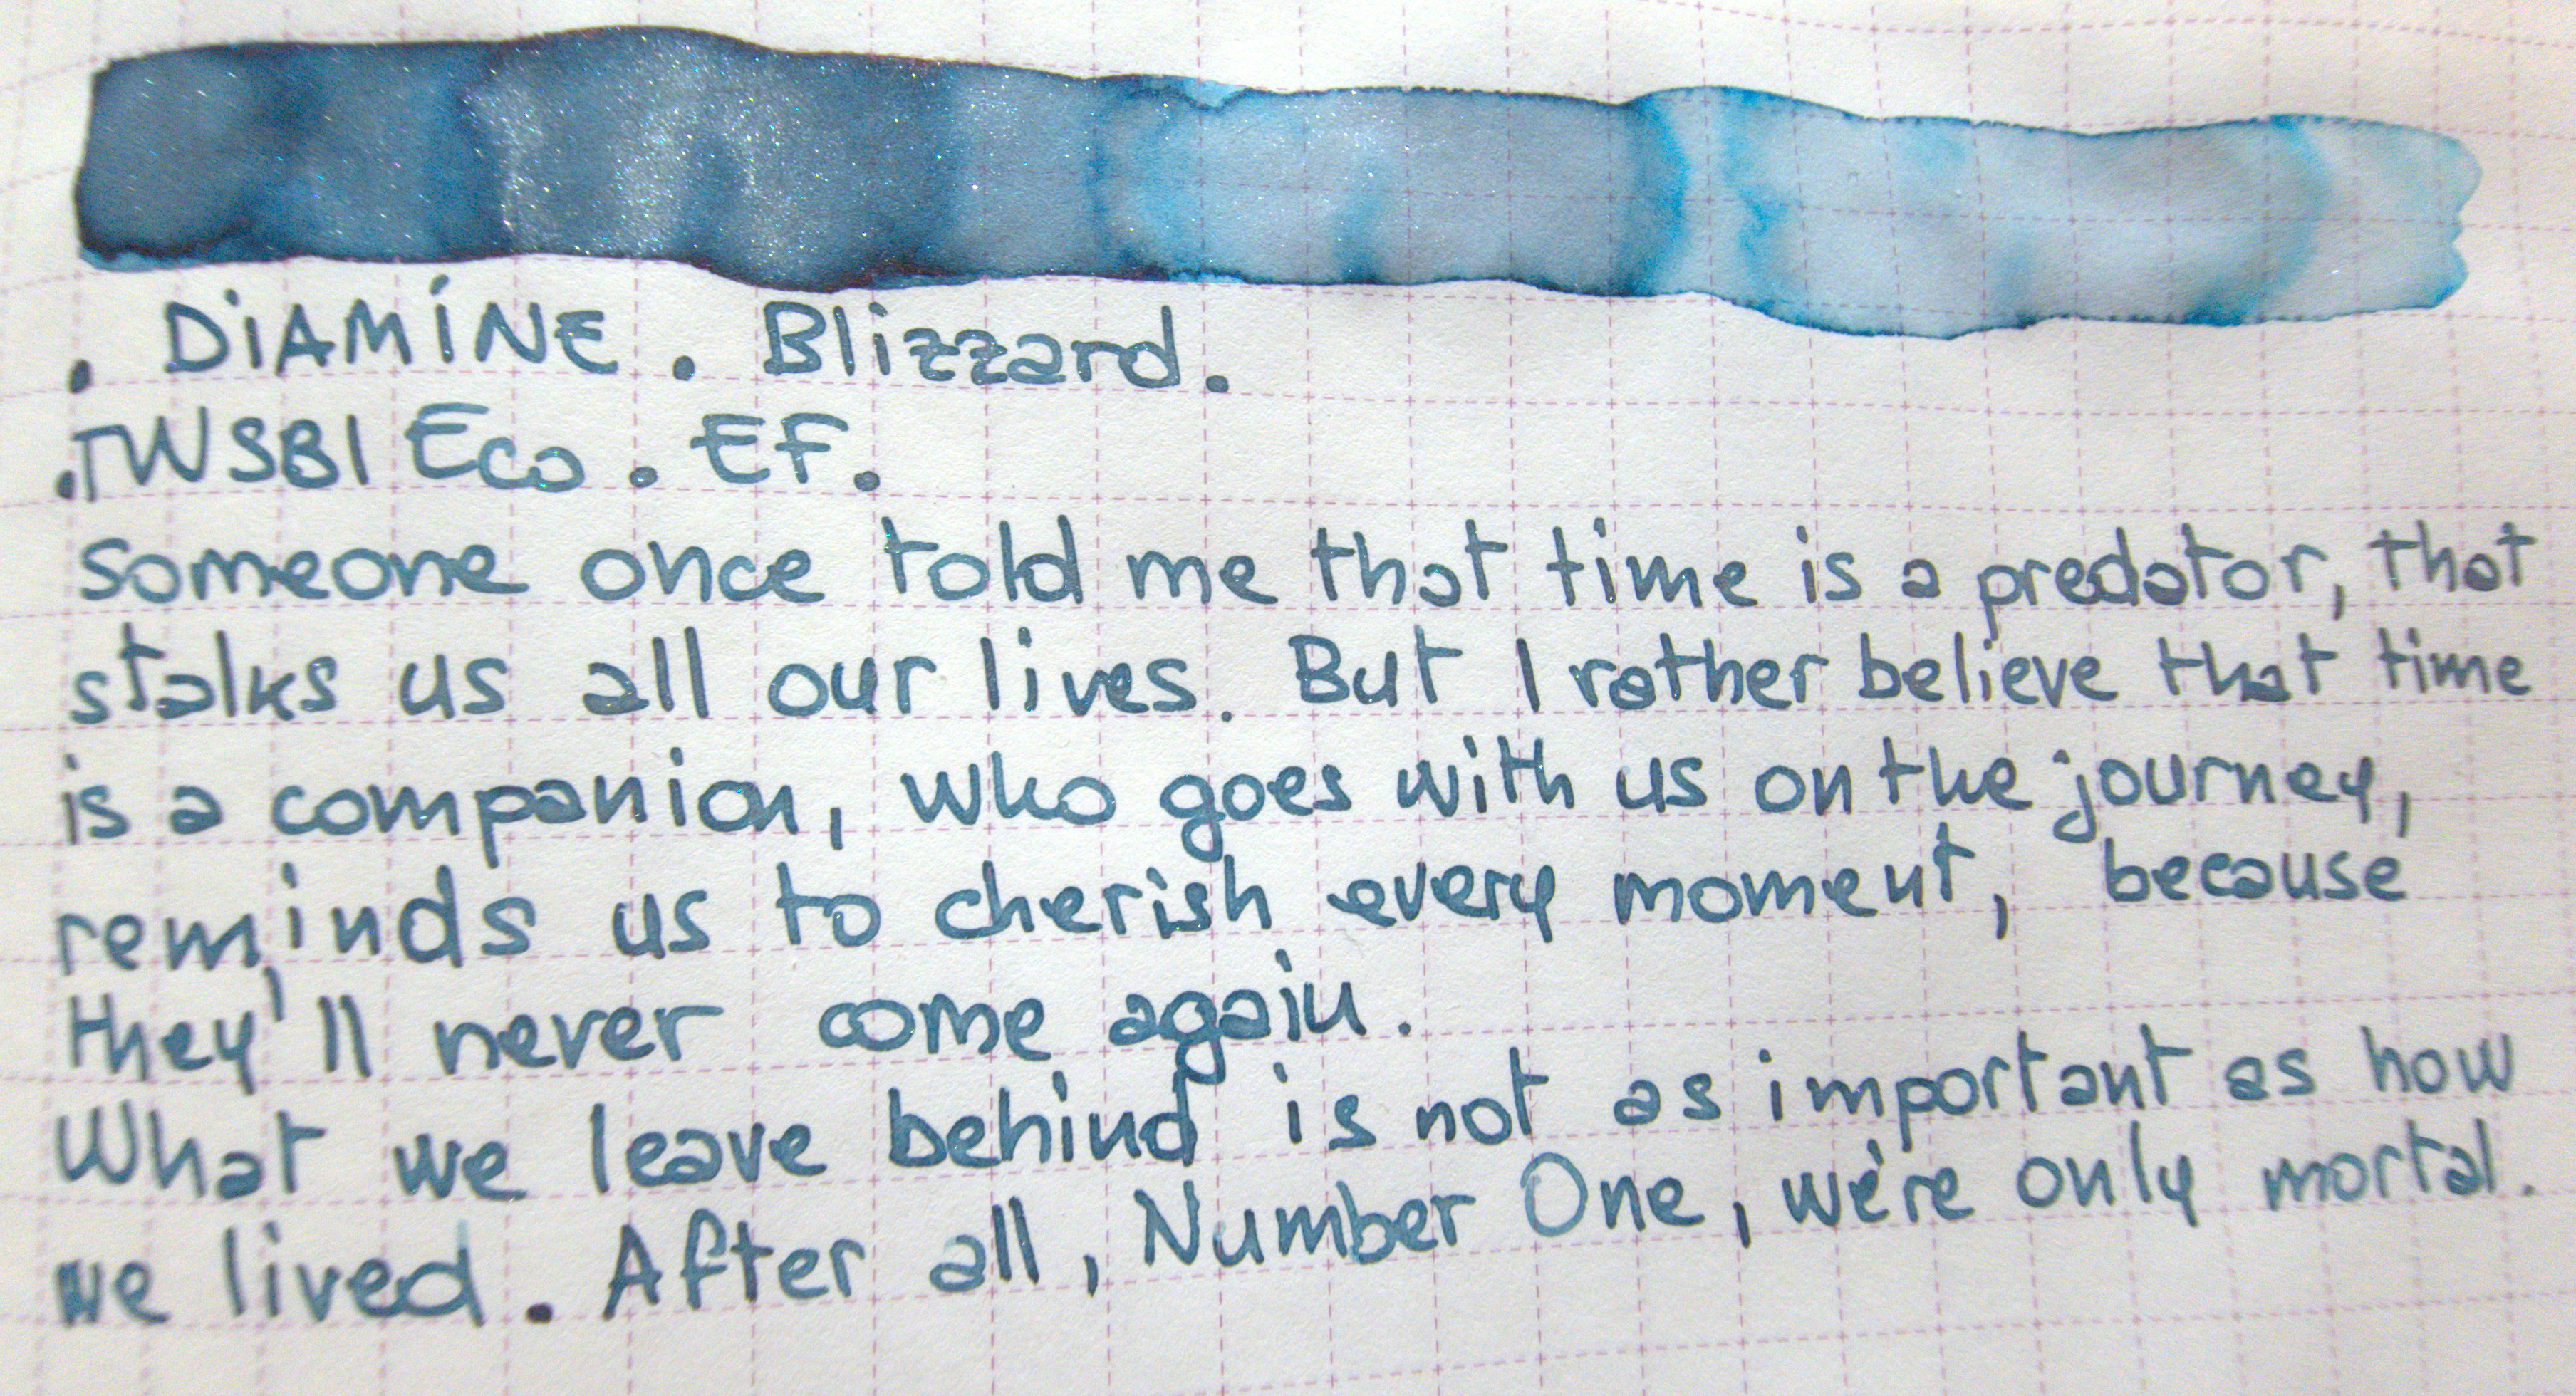 . DiAMiNE . Blizzard.
.TWSBI Eco . EF.
someone once told me that time is a predator, that
stalks us all our lives. But I rather believe that time
is a companion, who goes with us on the journey,
reminds us to cherish every moment, because
they'll never come again.
What we leave behind is not as important as how
we lived. After all, Number One, we're only mortal.